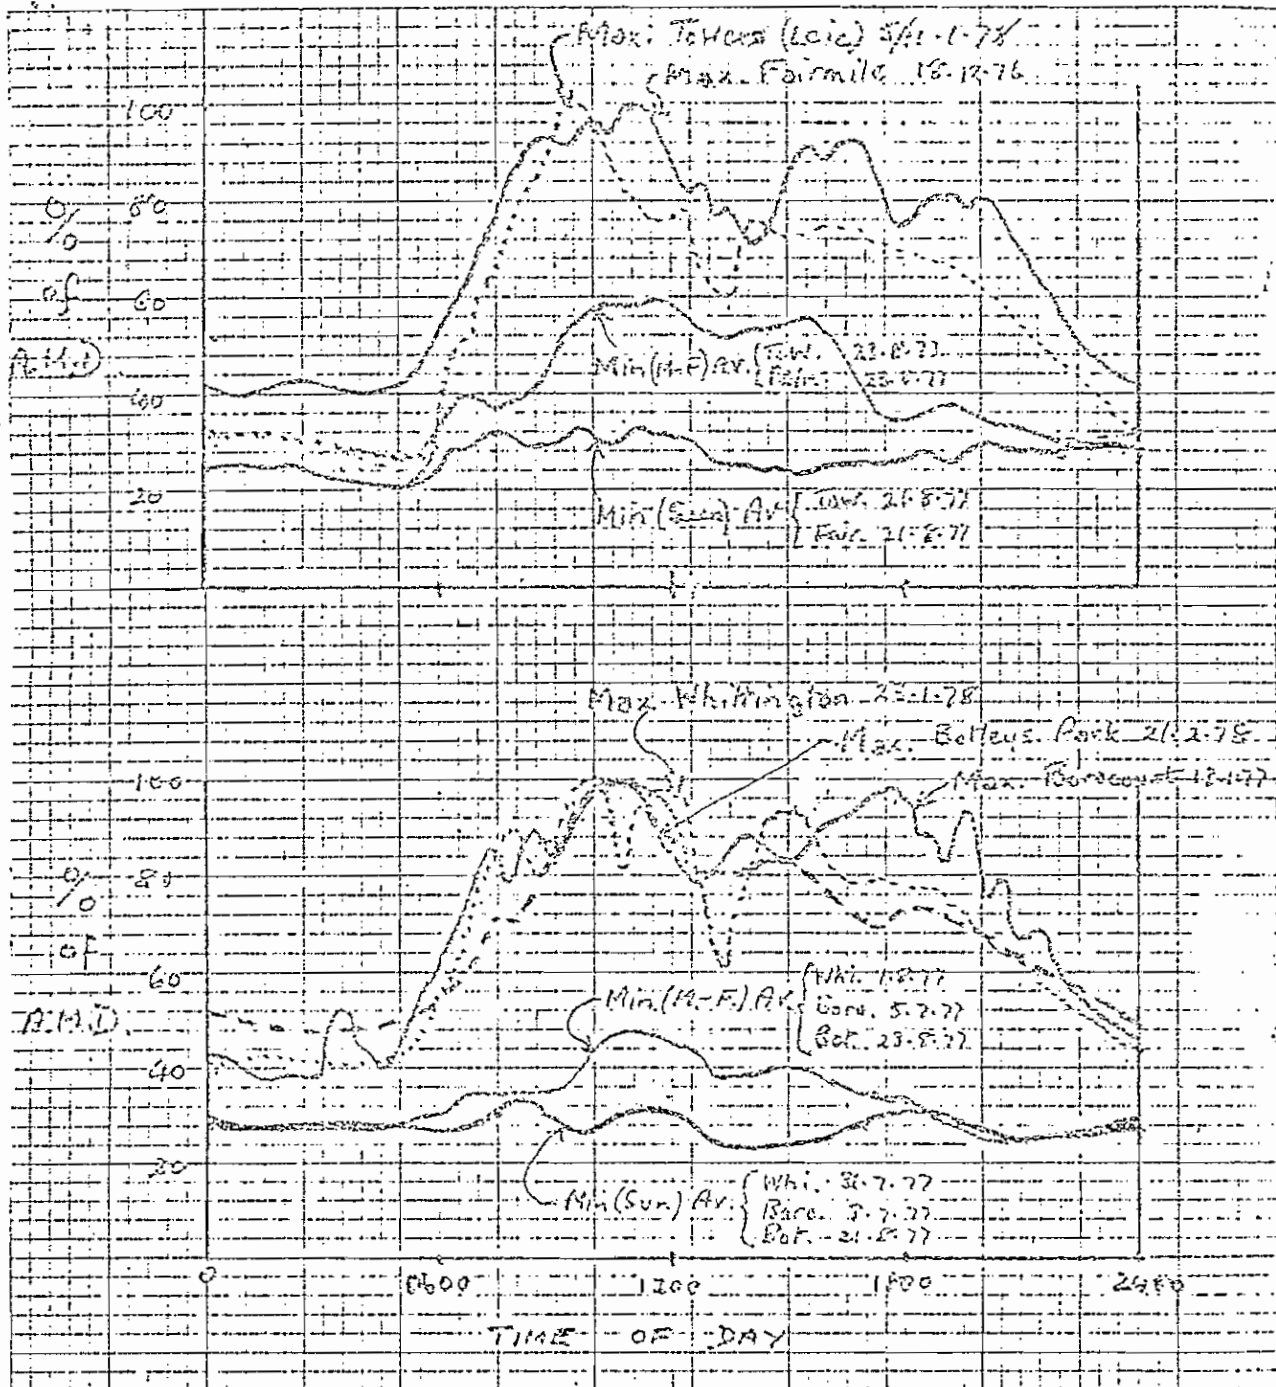 Max. Towers (Leic) 5/11-1-78
Max. Fairmile 18-12-76
100
% 80
of 60
A.M.D
40
20
Min (M-F) Av. { Tow. 23-8-77
Fair. 23-8-77
Min (Sun) Av { Tow. 21-8-77
Fair. 21-8-77
Max Whittington 23-1-78
Max. Botleys Park 21-2-78
Max. Borocourt
100
% 80
of
60
A.M.D.
40
20
Min. (M-F.) Av. { Whi. 1-8-77
Boro. 5-7-77
Bot. 23-8-77
Min (Sun) Av. { Whi. 31-7-77
Boro. 3-7-77
Bot. 21-8-77
0 0600 1200 1800 2400
TIME OF DAY